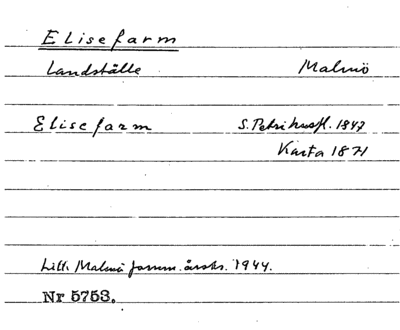 Elisefarm
Landställe Malmö
Elisefarm S. Petri husfl. 1847
Karta 1871
Litt. Malmö fornm. årsskr. 1944.
Nr 5753.